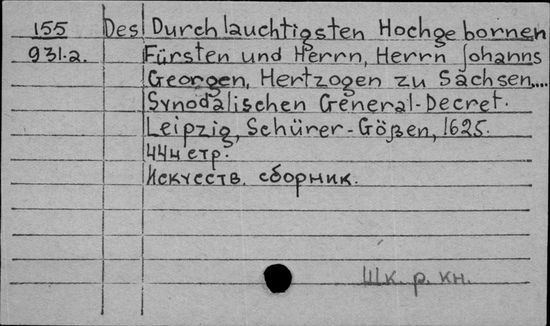 155 Des Durchlauchtigsten Hochgebornen
931.2. Fürsten und Herrn, Herrn Johanns
Georgen, Hertzogen zu Sachsen,....
Synodalischen General-Decret.
Leipzig, Schürer-Gößen, 1625.
444 стр.
Искусств. сборник.
Шк. р. кн.